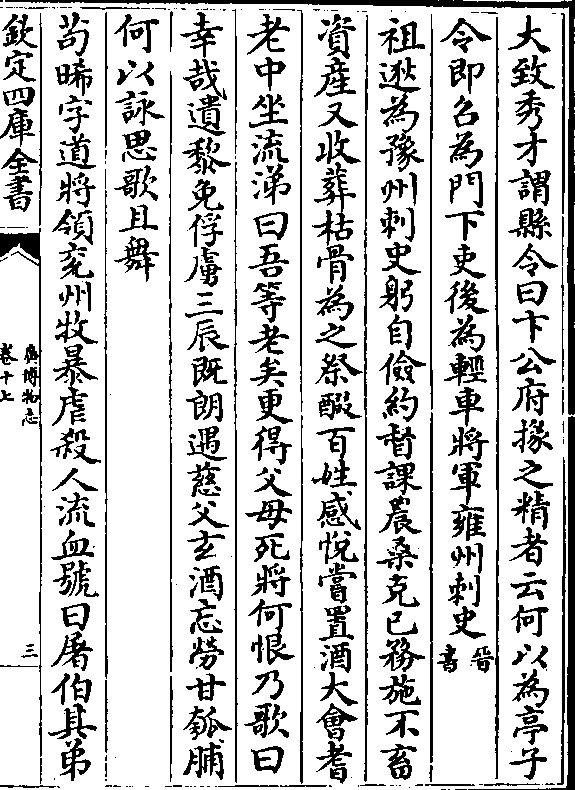 大致秀才謂縣令曰卞公府掾之精者云何以為亭子
令即召為門下吏後為輕車將軍雍州刺史晉書
祖逖為豫州刺史躬自儉約督課農桑克已務施不畜
資產又收葬枯骨為之祭醊百姓感悅嘗置酒大會耆
老中坐流涕曰吾等老矣更得父母死將何恨乃歌曰
幸哉遺黎免俘虜三辰既朗遇慈父玄酒忘勞甘瓠脯
何以詠思歌且舞
茍晞字道將領兖州牧暴虐殺人流血號曰屠伯其弟
欽定四庫全書
廣博物志
卷十七
三